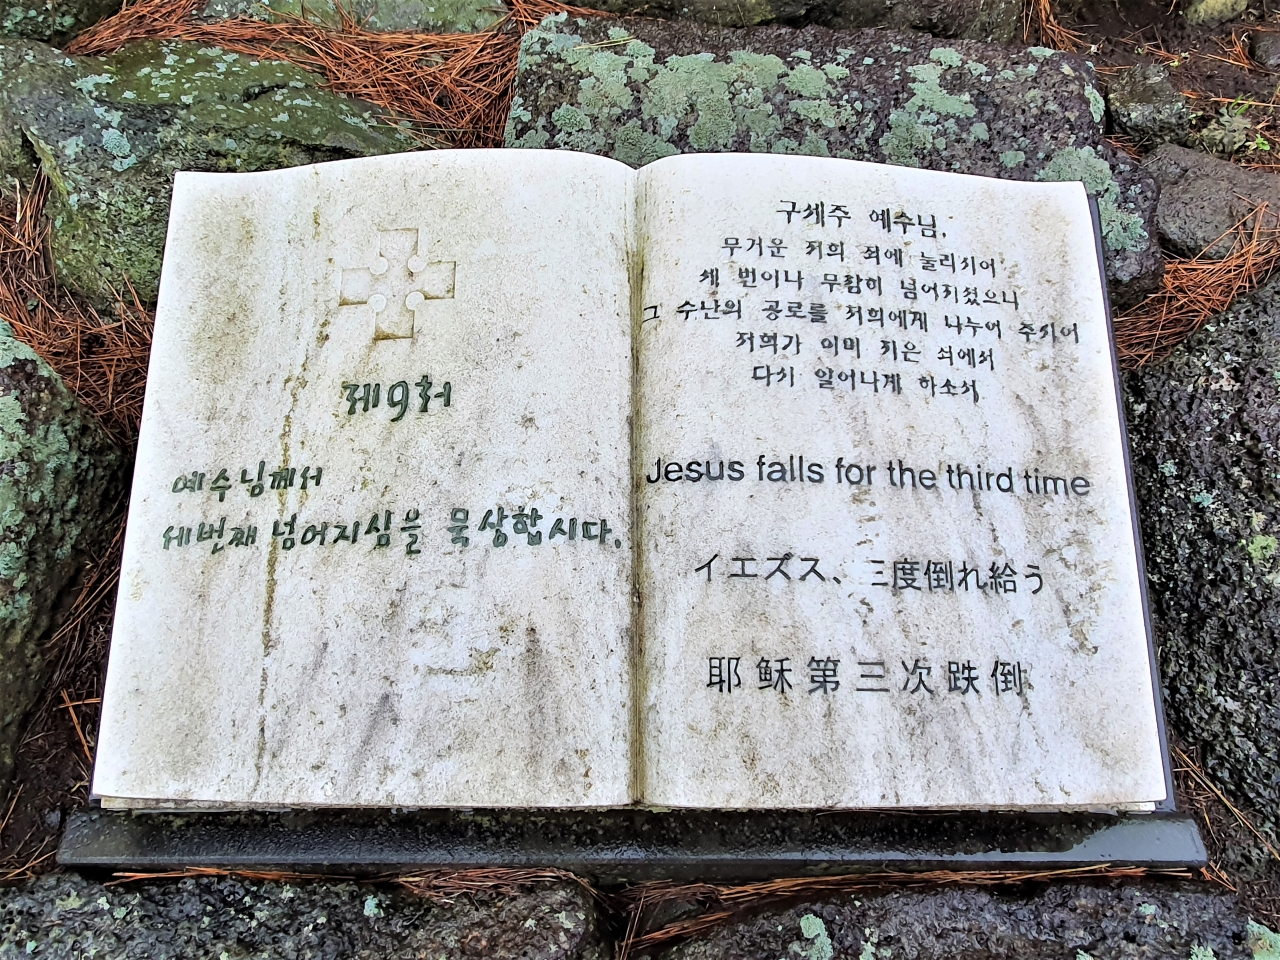 제9처
예수님께서
세번째 넘어지심을 묵상합시다.
구세주 예수님,
무거운 저희 죄에 눌리시어
세 번이나 무참히 넘어지셨으니
그 수난의 공로를 저희에게 나누어 주시어
저희가 이미 지은 죄에서
다시 일어나게 하소서.
Jesus falls for the third time
イエズス、三度倒れ給う
耶稣第三次跌倒